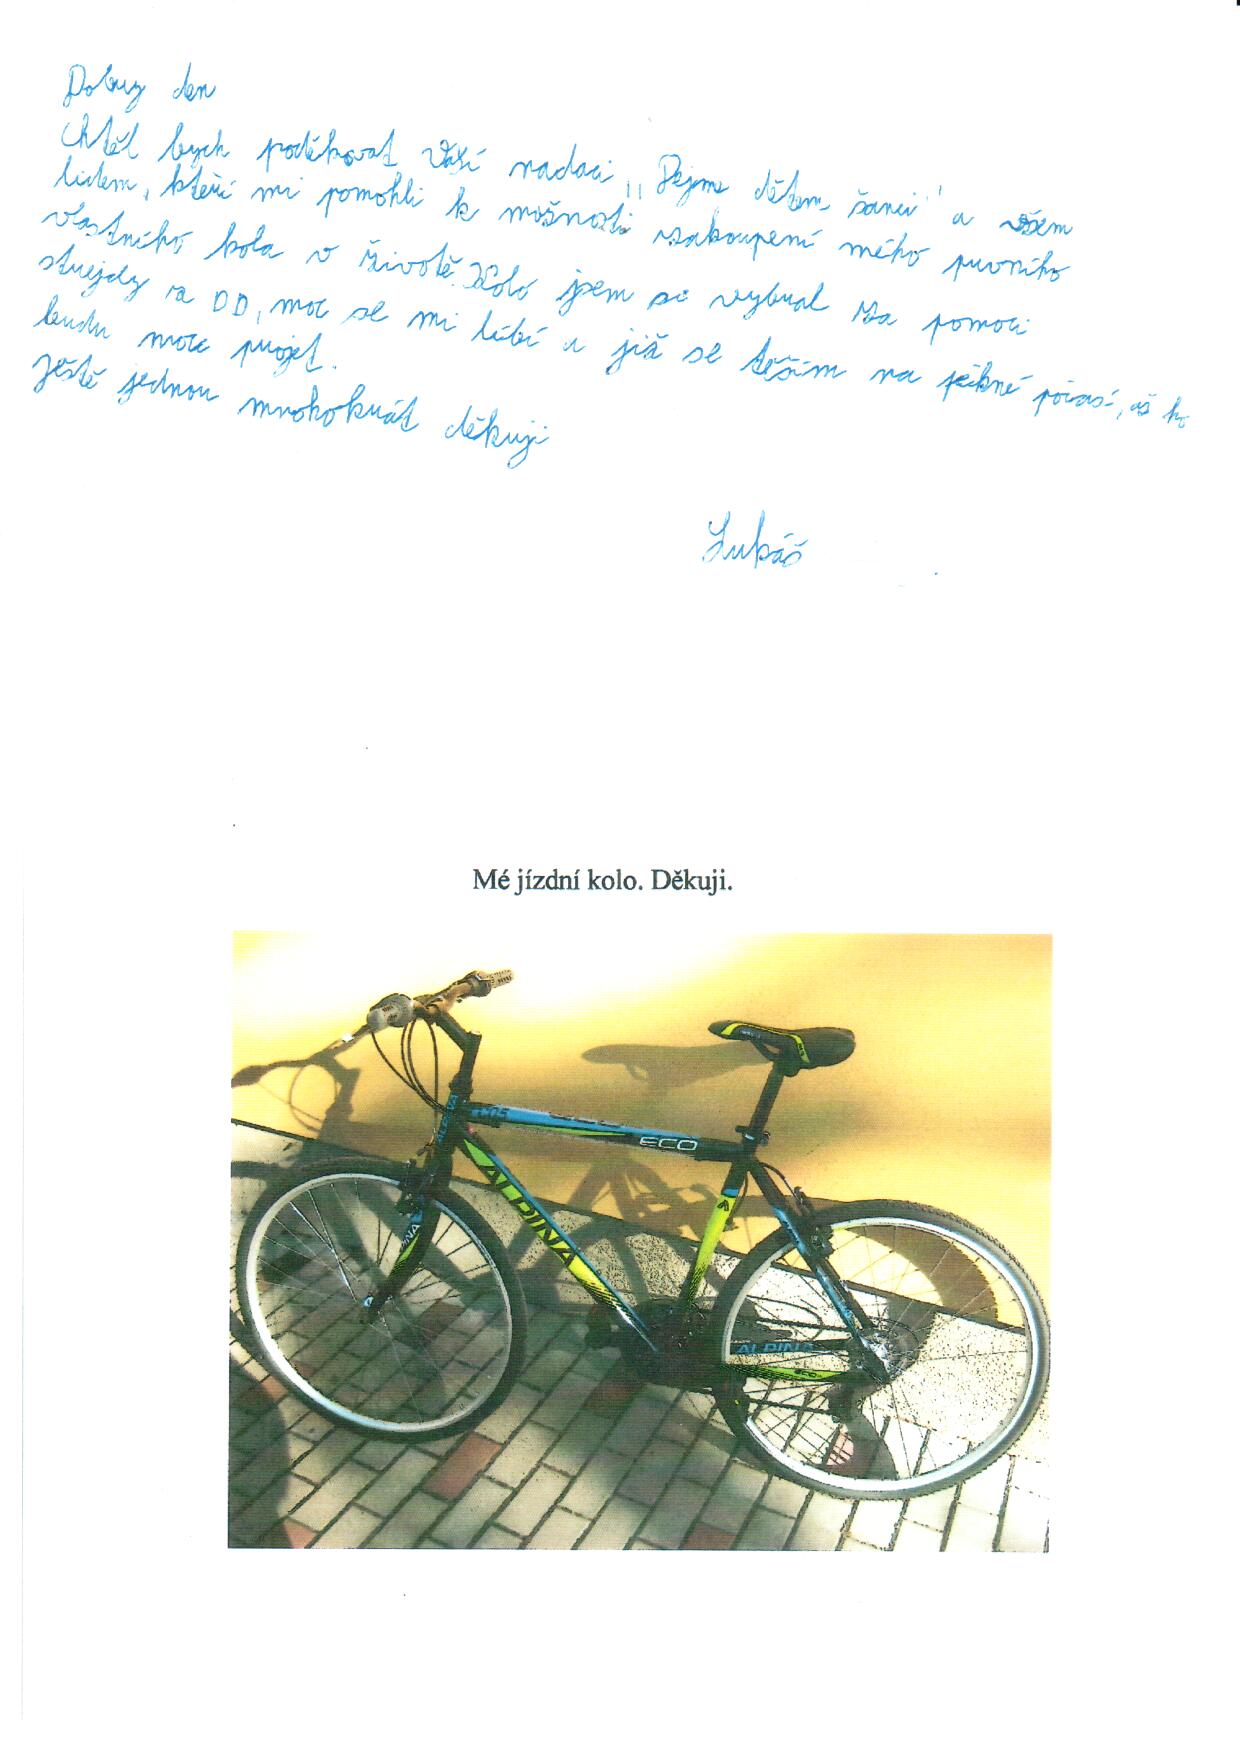 Dobrý den
Chtěl bych poděkovat Vaší nadaci ,,Dejme dětem šanci" a všem
lidem, kteří mi pomohli k možnosti zakoupení mého prvního
vlastního kola v životě. Kolo jsem si vybral za pomoci
strejdy z DD, moc se mi líbí a již se těším na pěkné počasí, až ho
budu moct projet.
Ještě jednou mnohokrát děkuji
Lukáš
Mé jízdní kolo. Děkuji.
ECO
ALPINA
ALPINA
ALPINA
eco